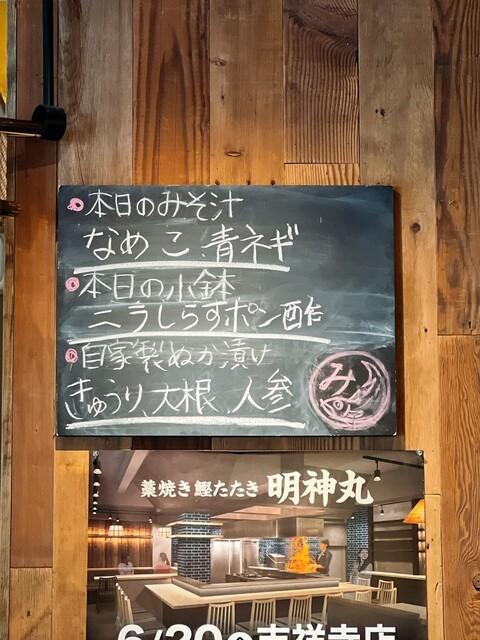 本日のみそ汁
なめこ、青ネギ
本日の小鉢
ニラしらすポン酢
自家製ぬか漬け
きゅうり、大根、人参
み
藁焼き鰹たたき 明神丸
吉祥寺店